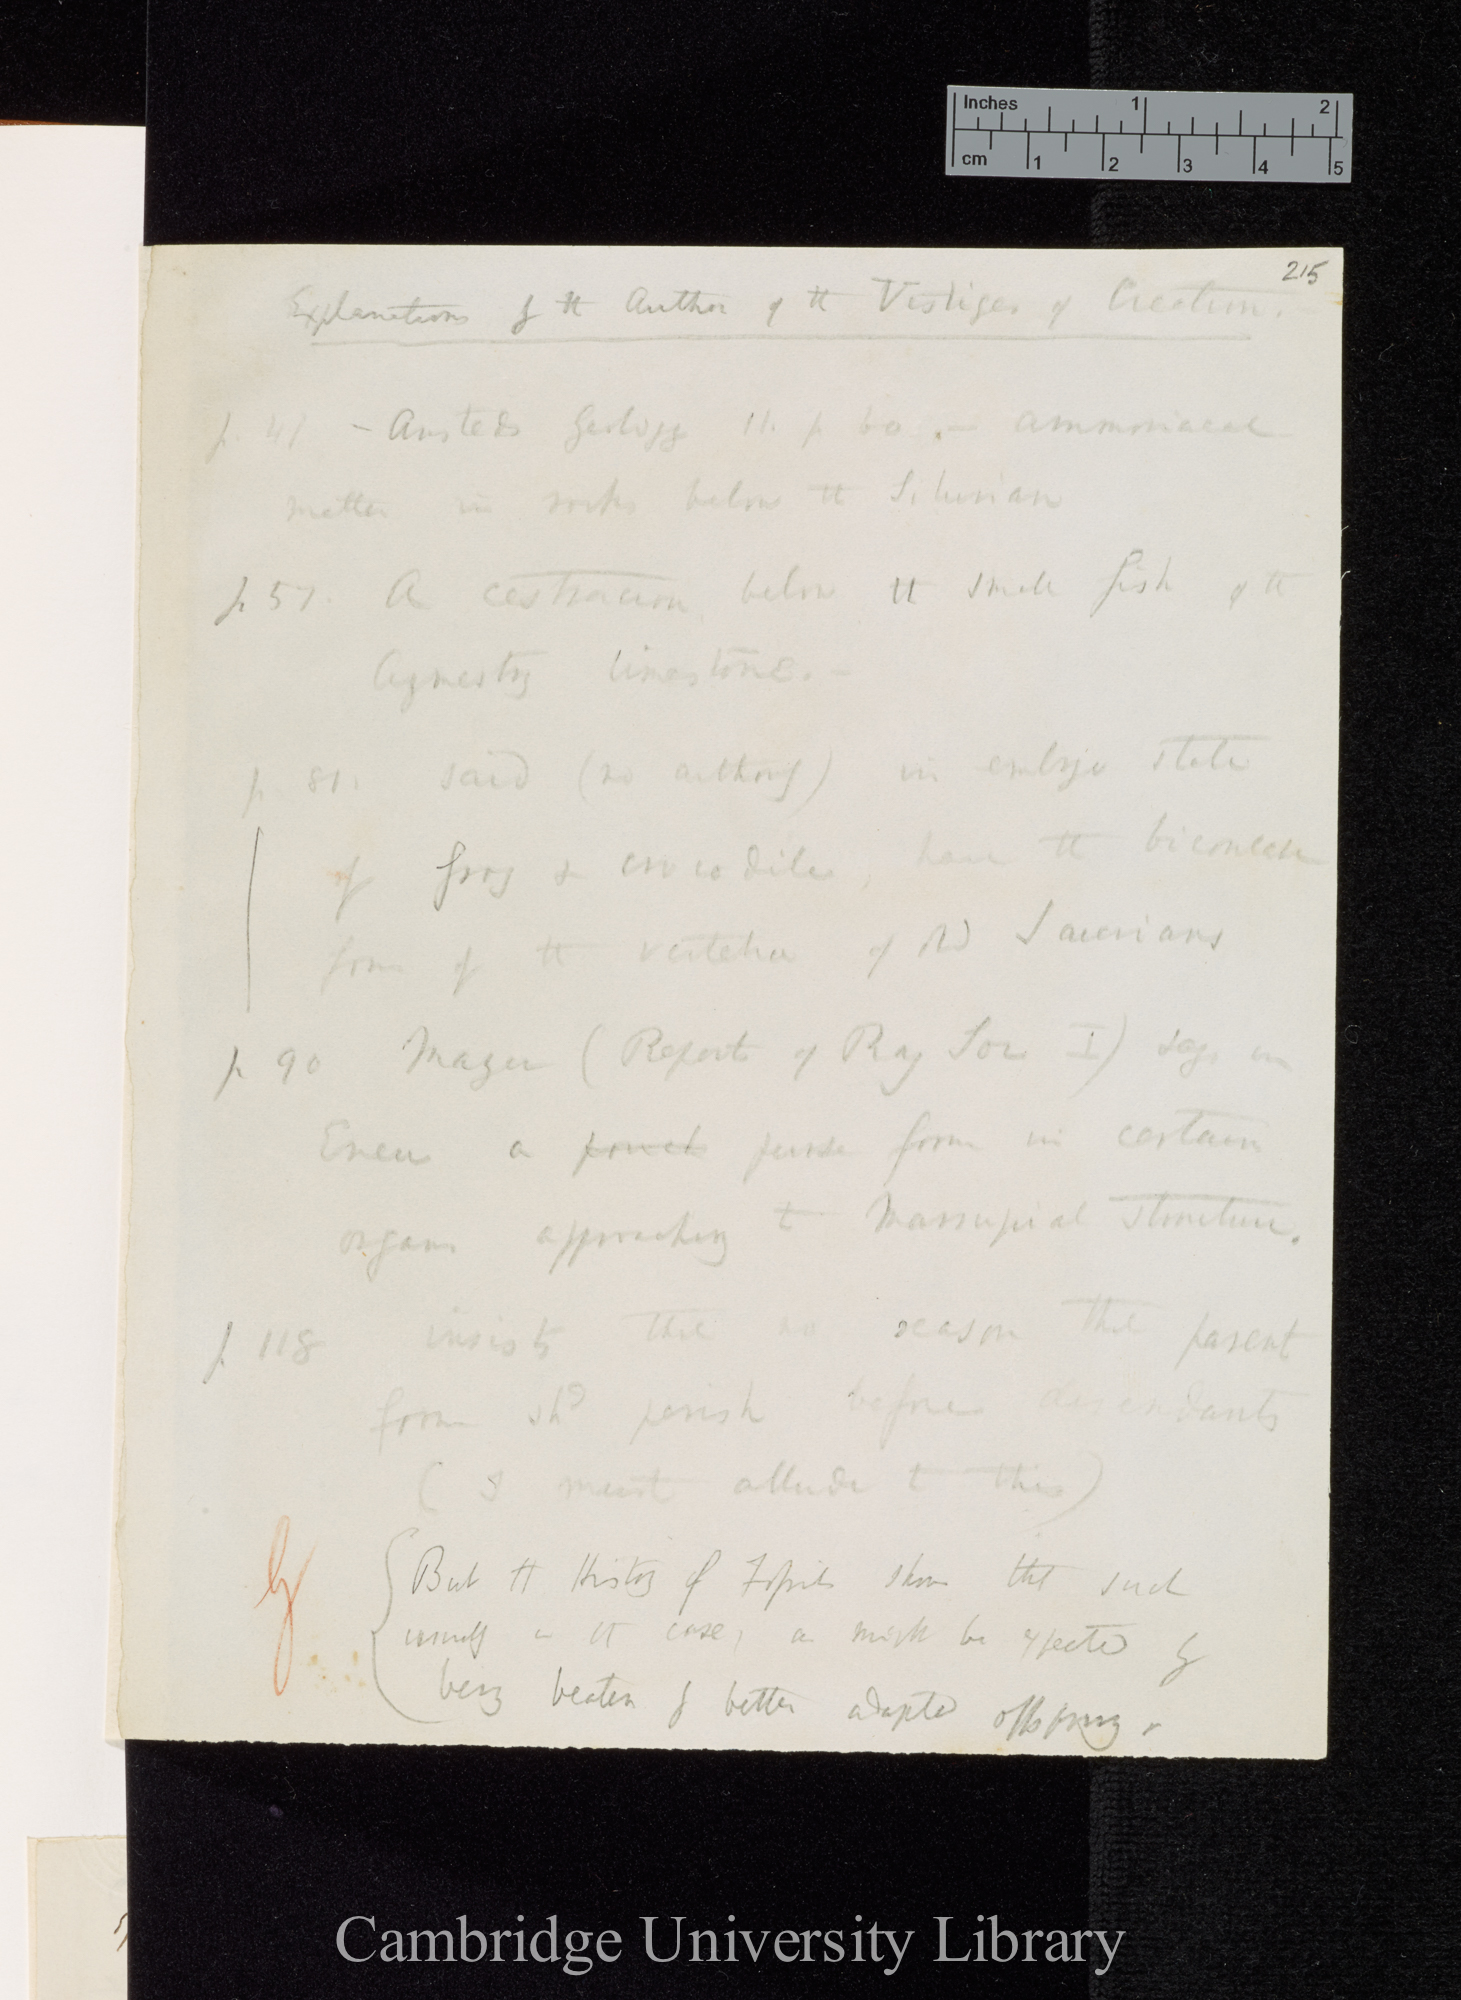 Inches 1 2
cm 1 2 3 4 5
215
Explanations by the Author of the Vestiges of Creation.
p. 41 - Ansteds Geology II. p 60. — ammoniacal
matter in rocks below the Silurian
p 57. A cestracion below the small fish of the
Aymestry limestone. —
p 81. said (no authority) in embryo state
of frog & crocodiles, have the biconcave
form of the vertebra of old Saurians
p 90 (Reports of Ray Soc I) says in
Emeu a pouch purse form in certain
organs approaching to Marsupial structure.
p 118 insists that no reason that parent
form shd perish before descendants
(I must allude to this)
But the History of Fossils shows that such
usually is the case, as might be expected by
being beaten by better adapted offspring.
Cambridge University Library